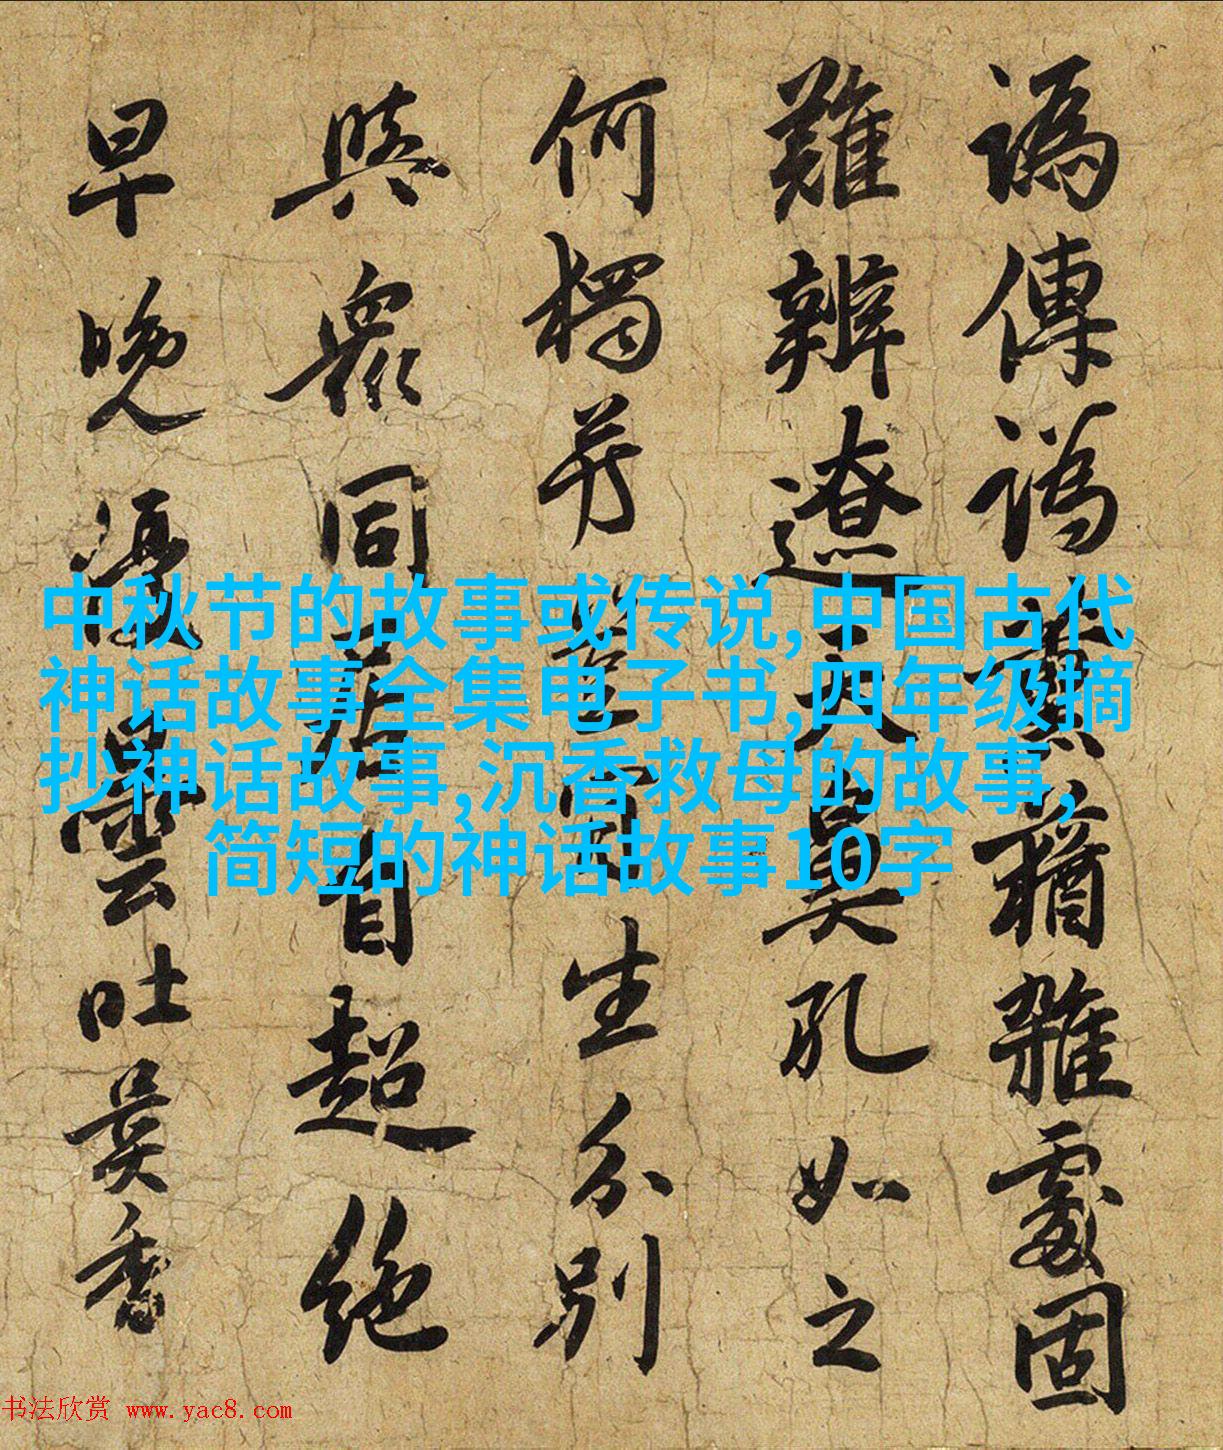 譌傳譌薰蕕雜處固
難辨遼天鼻孔如之
何獨芳生分別
與衆同居自超絶
早晚優曇吐異香
中秋节的故事或传说,中国古代
神话故事全集电子书,四年级摘
抄神话故事,沉香救母的故事,
简短的神话故事10字
书法欣赏 www.yac8.com